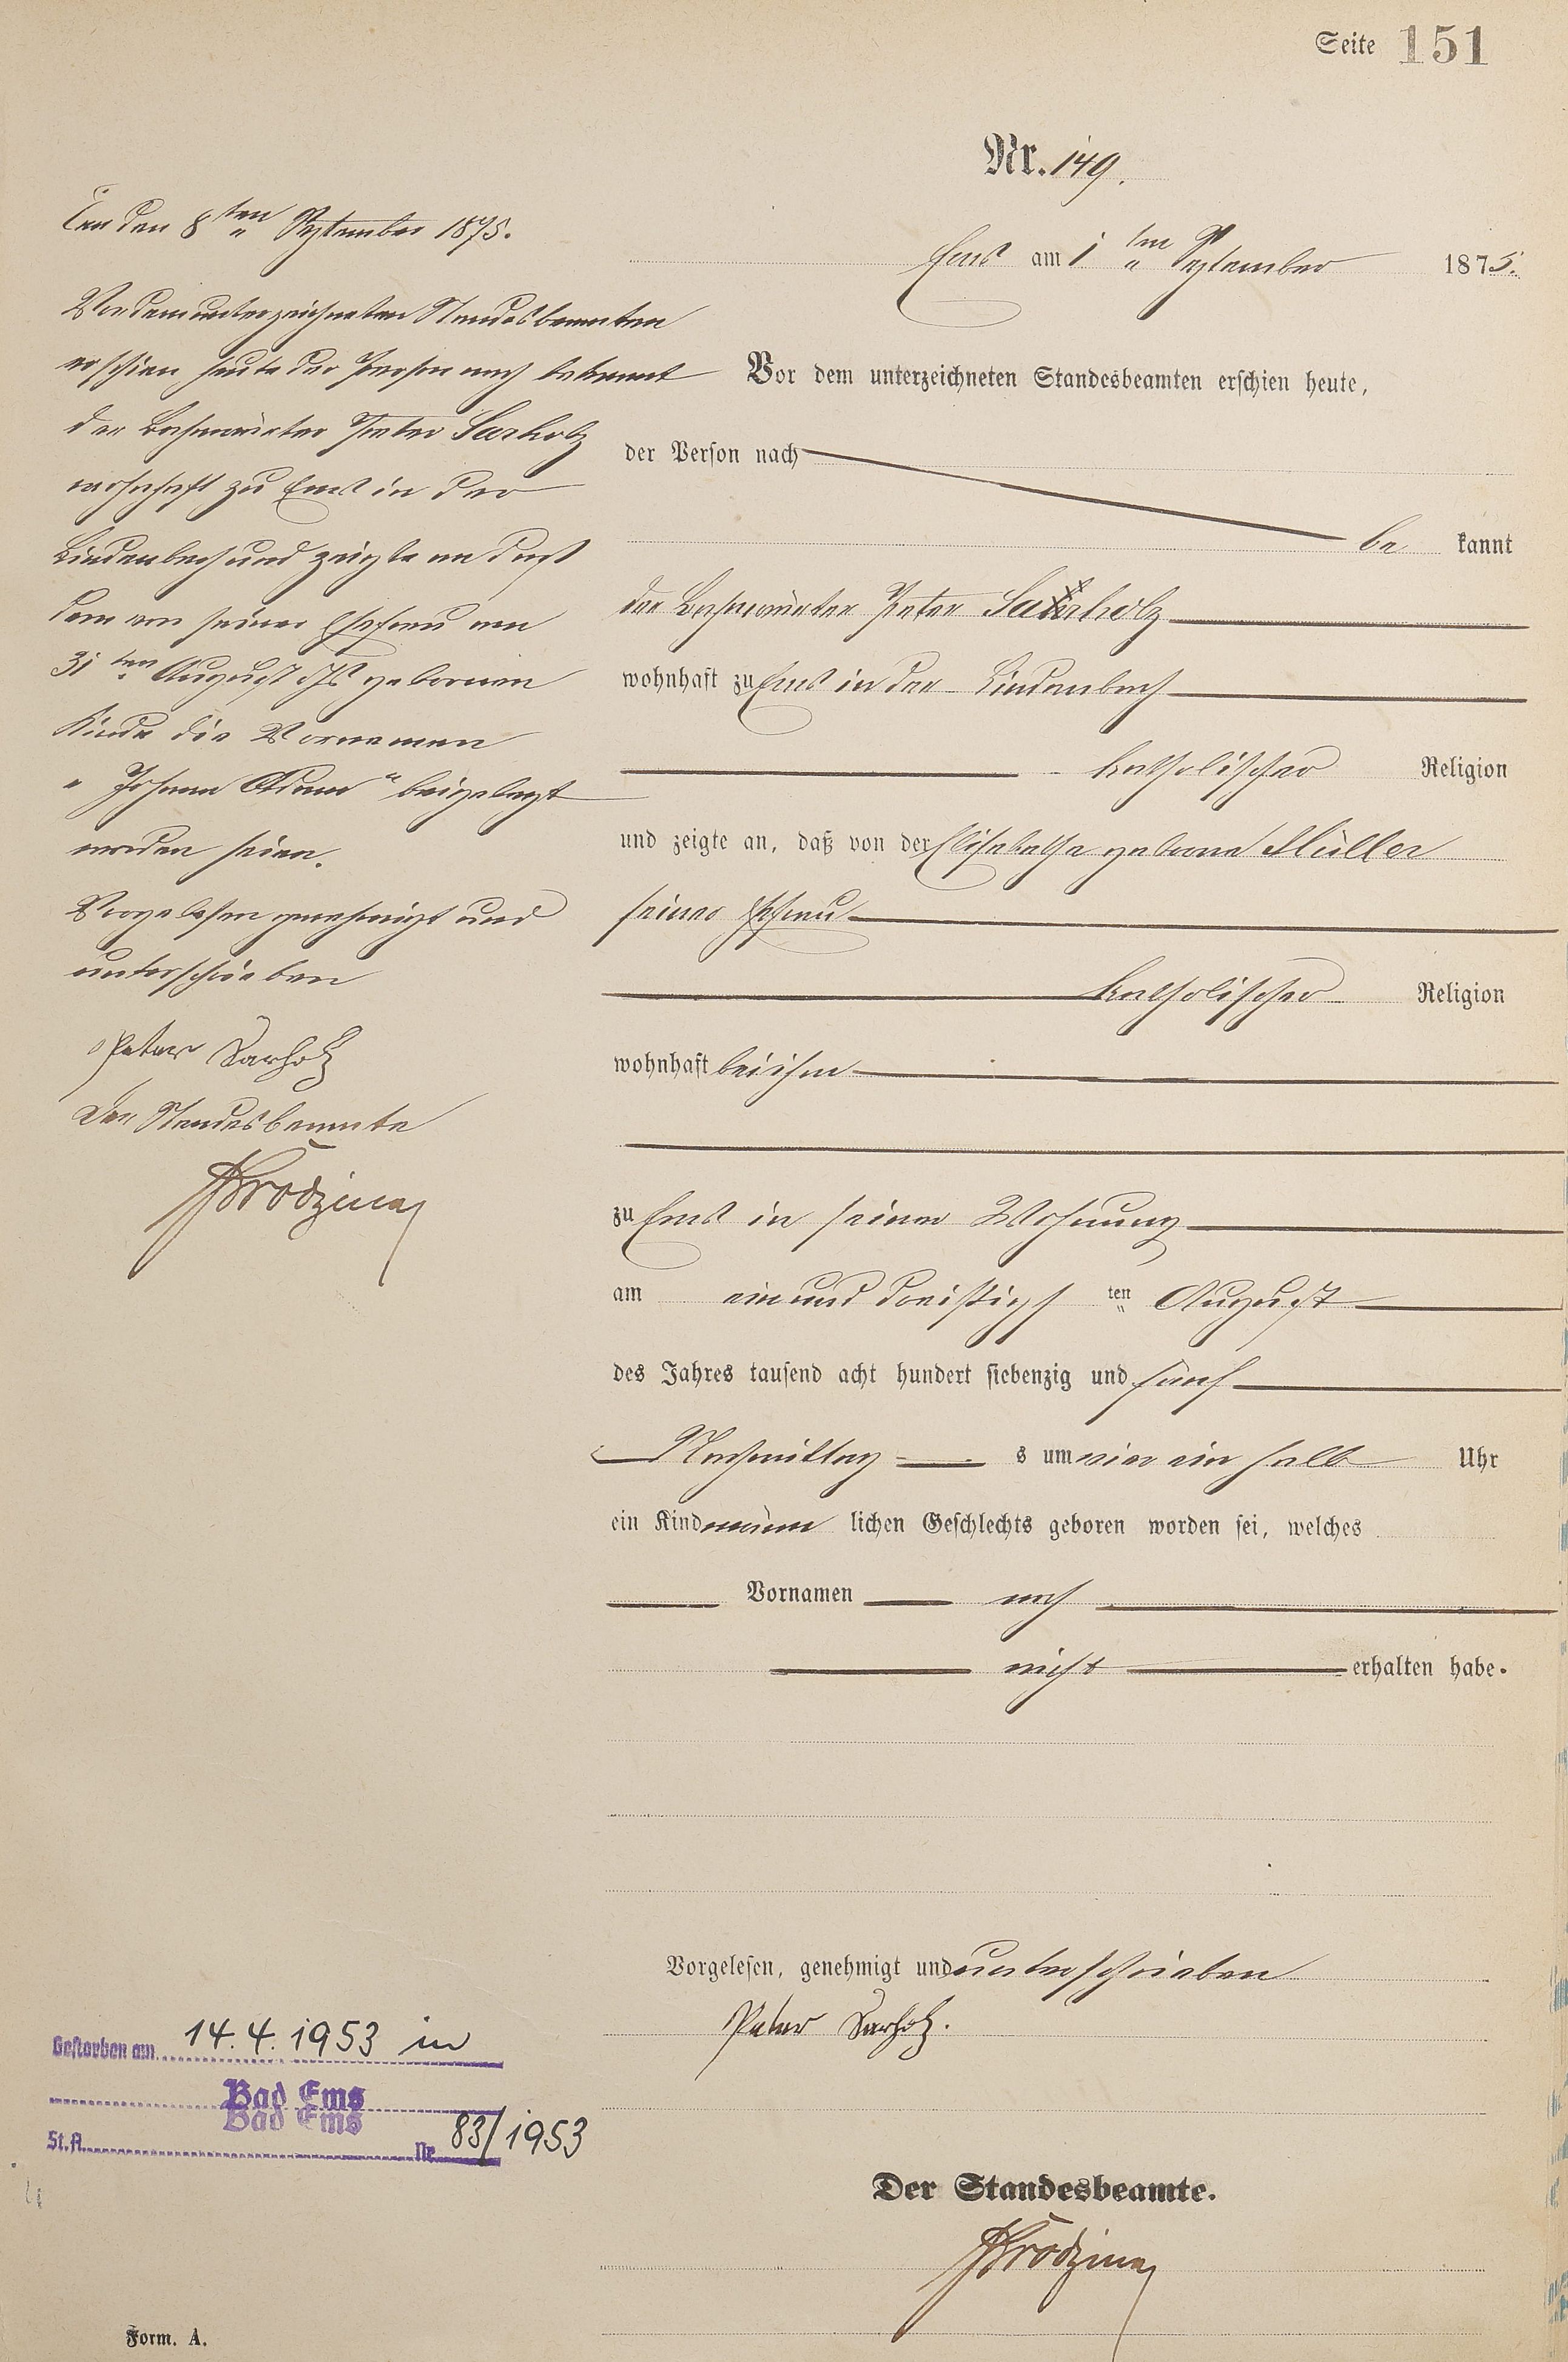 Seite 151
Nr. 149.
Ems am 1ten September 1875.
Vor dem unterzeichneten Standesbeamten erschien heute,
der Person nach
be kannt
der Bahnwärter Peter Sarholz
wohnhaft zu Ems in der Lindenbach
katholischer Religion
und zeigte an, daß von der Elisabetha geborne Müller
seiner Ehefrau
katholischer Religion
wohnhaft bei ihm
zu Ems in seiner Wohnung
am ein und dreißigsten August
des Jahres tausend acht hundert siebenzig und fünf
Nachmittags um vier ein halb Uhr
ein Kind männlichen Geschlechts geboren worden sei, welches
Vornamen noch
nicht erhalten habe.
Vorgelesen, genehmigt und unterschrieben
Peter Sarholz.
Der Standesbeamte.
den 8ten September 1875.
Vor dem unterzeichneten Standesbeamten
erschien heute der Person nach bekannt
der Bahnwärter Peter Sarholz
wohnhaft zu Ems in der
Lindenbach und zeigte an daß
dem von seiner Ehefrau am
31ten August d Js gebornen
Kinde die Vornamen
"Johann Adam" beigelegt
worden seien.
Vorgelesen genehmigt und
unterschrieben
Peter Sarholz
Der Standesbeamte
Gestorben am 14.4.1953 in
Bad Ems
Bad Ems
St.A. Nr. 83/1953
Form. A.